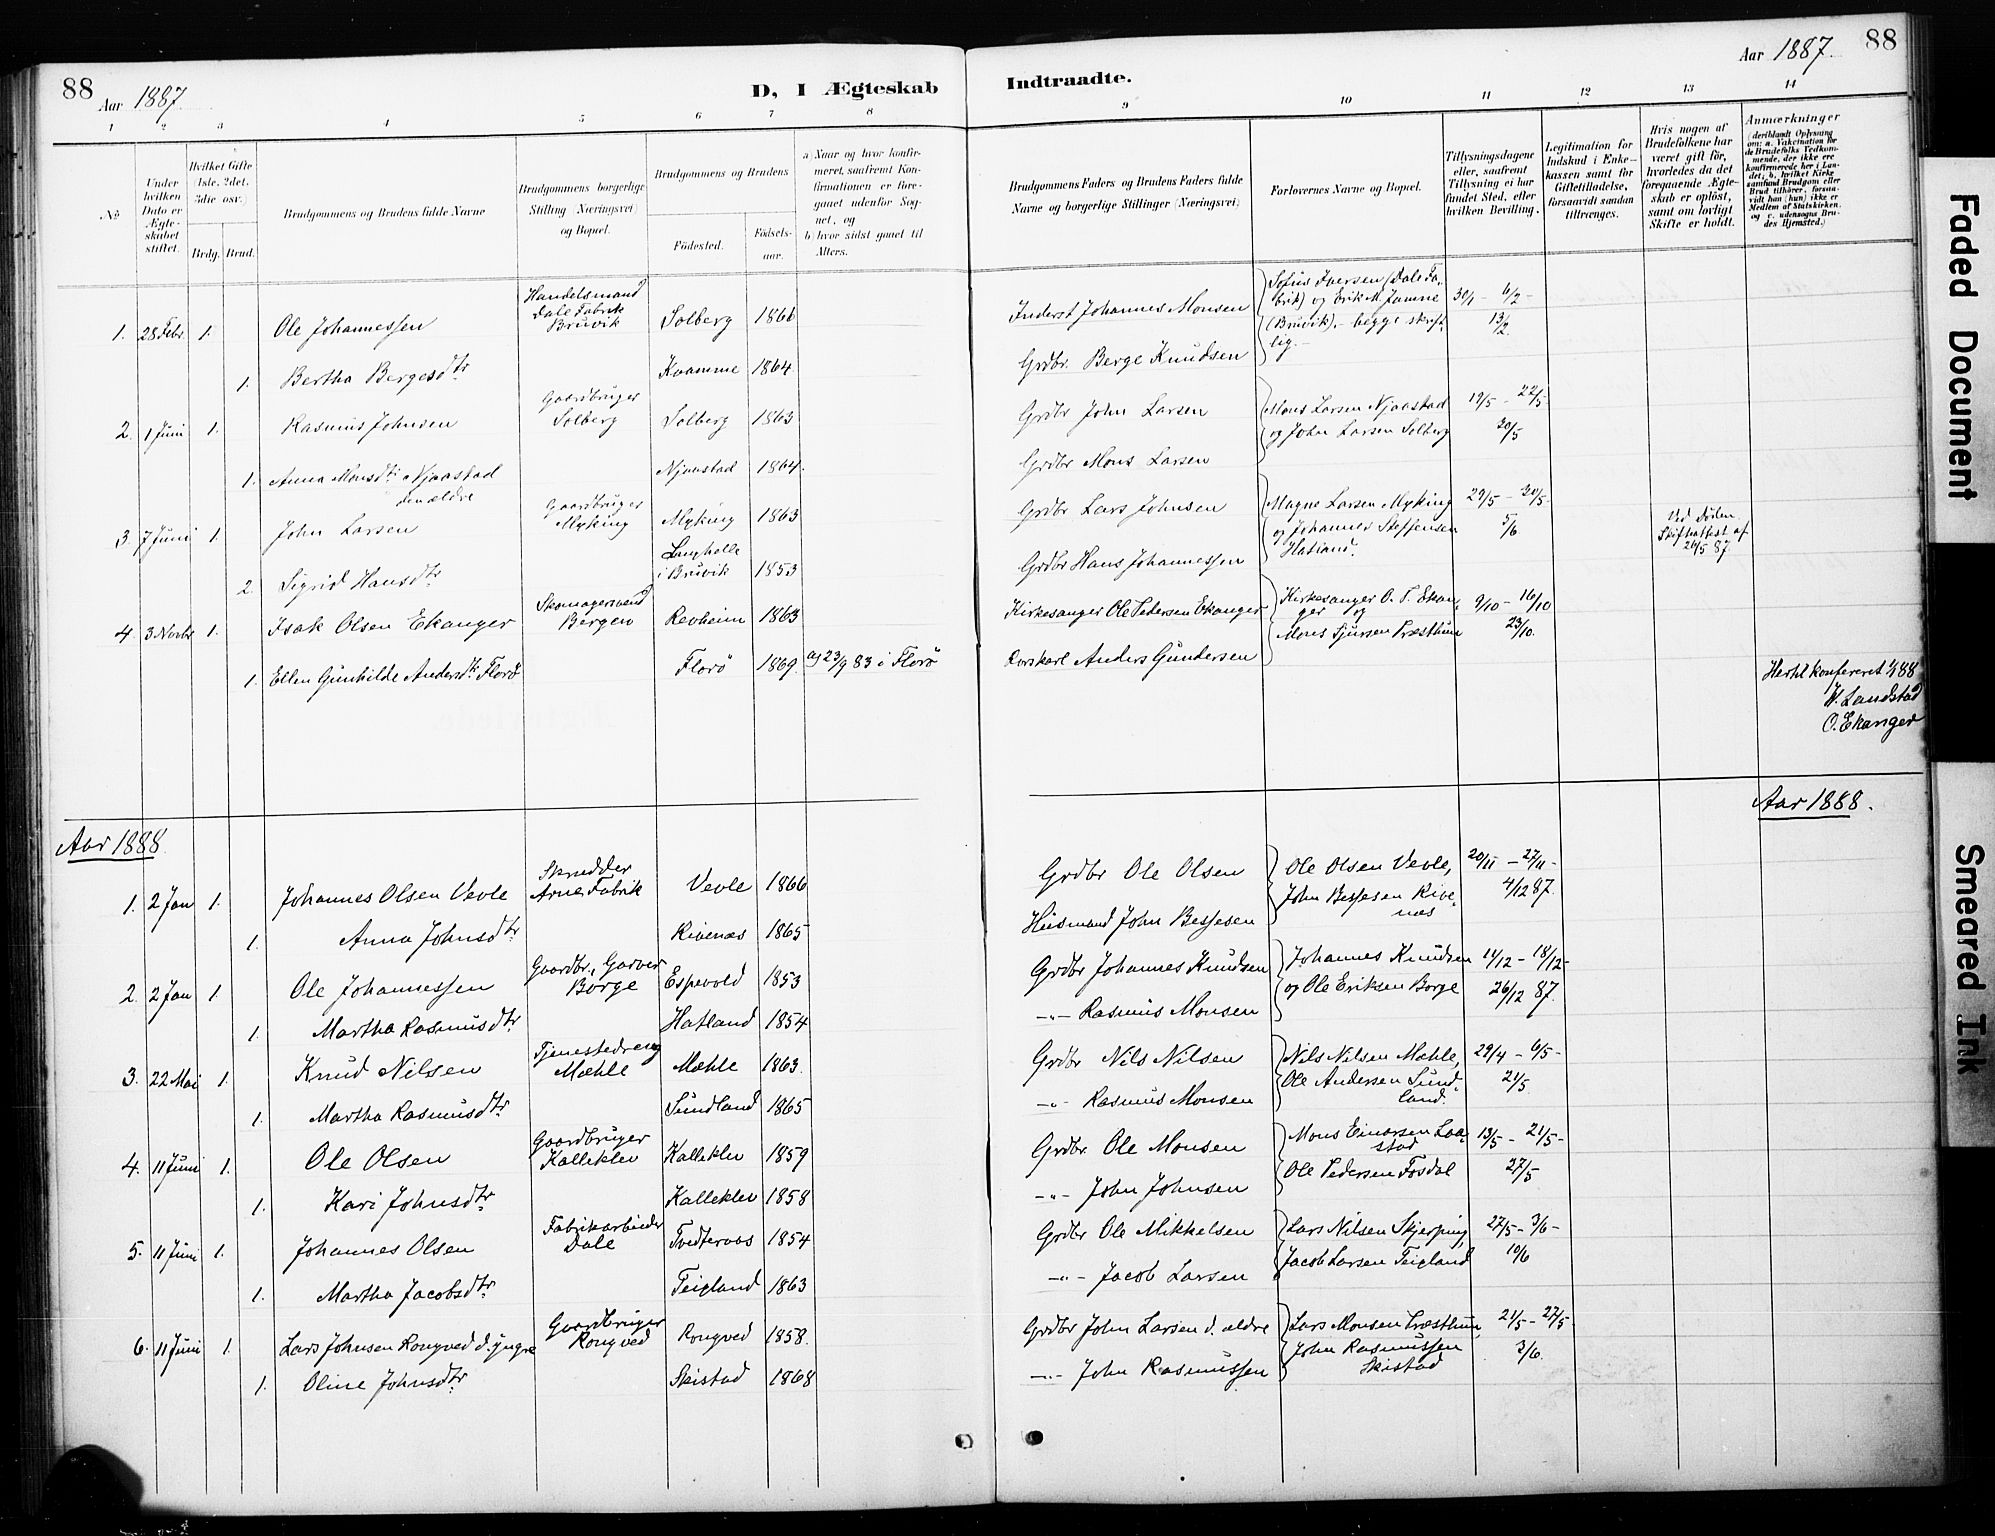 88
Aar 1887.
D, I Ægteskab
Indtraadte.
Aar 1887.
88
1 2 3 4 5 6 7 8
9 10 11 12 13 14
No
Under hvilken Dato er Ægteskabet stiftet.
Hvilket Gifte (1ste, 2det, 3die osv.)
Brdg. Brud.
Brudgommens og Brudens fulde Navne
Brudgommens borgerlige Stilling (Næringsvei) og Bopæl.
Brudgommens og Brudens
Födested.
Födselsaar.
a) Naar og hvor konfirmeret, saafremt Konfirmationen er foregaaet udenfor Sognet, og
b) hvor sidst gaaet til Alters.
Brudgommens Faders og Brudens Faders fulde Navne og borgerlige Stillinger (Næringsvei)
Forlovernes Navne og Bopæl.
Tillysningsdagene eller, saafremt Tillysning ei har fundet Sted, efter hvilken Bevilling.
Legitimation for Indskud i Enkekassen samt for Giftetilladelse, forsaavidt saadan tiltrænges.
Hvis nogen af Brudefolkene har været gift för, hvorledes da det foregaaende Ægteskab er oplöst, samt om lovligt Skifte er holdt.
Anmærkninger
(deriblandt Oplysning om: a. Vakcination for de Brudefolks Vedkommende, der ikke ere konfirmerede her i Landet, b. hvilket Kirkesamfund Brudgom eller Brud tilhörer, forsaavidt han (hun) ikke er Medlem af Statskirken, og c. udensogns Brudes Hjemsted.)
1. 28 Febr. 1. Ole Johannessen Handelsmand Dale Fabrik Bruvik Solberg 1866 Inderst Johannes Monsen Sofus Iversen (Dale Fabrik) og Erik M. Jamne (Bruvik), - begge skriftlig. - 30/1 - 6/2 - 13/2.
1. Bertha Bergesdtr Kvamme 1864 Grdbr. Berge Knudsen
2. 1 Juni 1. Rasmus Johnsen Gaardbruger Solberg Solberg 1863 Grdbr John Larsen Mons Larsen Njaastad og John Larsen Solberg 19/5 - 22/5. 30/5
1. Anna Monsdtr Njaastad den ældre Njaastad 1864. Grdbr Mons Larsen
3. 7 Juni 1. John Larsen Gaardbruger Myking Myking 1863 Grdbr Lars Johnsen Magne Larsen Myking og Johannes Steffensen Hatland. 29/5 - 30/5. 5/6 Ved Döden. Skifteattest af 26/5 87.
2. Sigrid Hansdtr Langhelle i Bruvik 1853 Grdbr Hans Johannessen
4. 3 Novbr 1. Isak Olsen Ekanger Skomagersvend Bergen Revheim 1863 Kirkesanger Ole Pedersen Ekanger Kirkesanger O. P. Ekanger og Mons Sjursen Træsthun 9/10 - 16/10 23/10.
1. Ellen Gunhilde Andersdtr Florö Florö 1869. a) 23/9 83 i Florö Anders Gundersen
Hertil konfereret 4/1 88
W. Landstad
O. Ekanger
Aar 1888.
Aar 1888.
1. 2 Jan 1. Johannes Olsen Vevle Skrædder Arne Fabrik Vevle 1866 Grdbr Ole Olsen Ole Olsen Vevle, John Bessesen Rivenæs 20/11 - 27/11 - 4/12 87.
1. Anna Johnsdtr Rivenæs 1865 Husmand John Bessesen
2. 2 Jan 1. Ole Johannessen Gaardbr., Garver Borge Espevold 1853 Grdbr Johannes Knudsen Johannes Knudsen og Ole Eriksen Borge 11/12 - 18/12 - 26/12 87.
1. Martha Rasmusdtr. Hatland 1854 -"- Rasmus Monsen
3. 22 Mai 1. Knud Nilsen Tjenestedreng Mæhle Mæhle 1863. Grdbr Nils Nilsen Nils Nilsen Mæhle, Ole Andersen Sundland. 29/4 - 6/5 - 21/5.
1. Martha Rasmusdtr. Sundland 1865 -"- Rasmus Monsen
4. 11 Juni 1. Ole Olsen Gaardbruger Kalleklev Kalleklev 1859 Grdbr. Ole Monsen Mons Einarsen Laastad Ole Pedersen Fosdal 13/5 - 21/5 - 27/5
1. Kari Johnsdtr. Kalleklev 1858 -"- John Johnsen
5. 11 Juni 1. Johannes Olsen Fabrikarbeider Dale Tvedteraas 1854 Grdbr Ole Mikkelsen Lars Nilsen Skjerping, Jacob Larsen Teigland 27/5 - 3/6 - 10/6
1. Martha Jacobsdtr. Teigland 1863 -"- Jacob Larsen
6. 11 Juni 1. Lars Johnsen Rongved d. yngre Gaardbruger Rongved Rongved 1858. Grdbr John Larsen d. ældre Lars Monsen Træsthun, John Rasmussen Skistad 21/5 - 27/5 3/6.
1. Oline Johnsdtr. Skistad 1868 -"- John Rasmussen
Faded Document
Smeared Ink